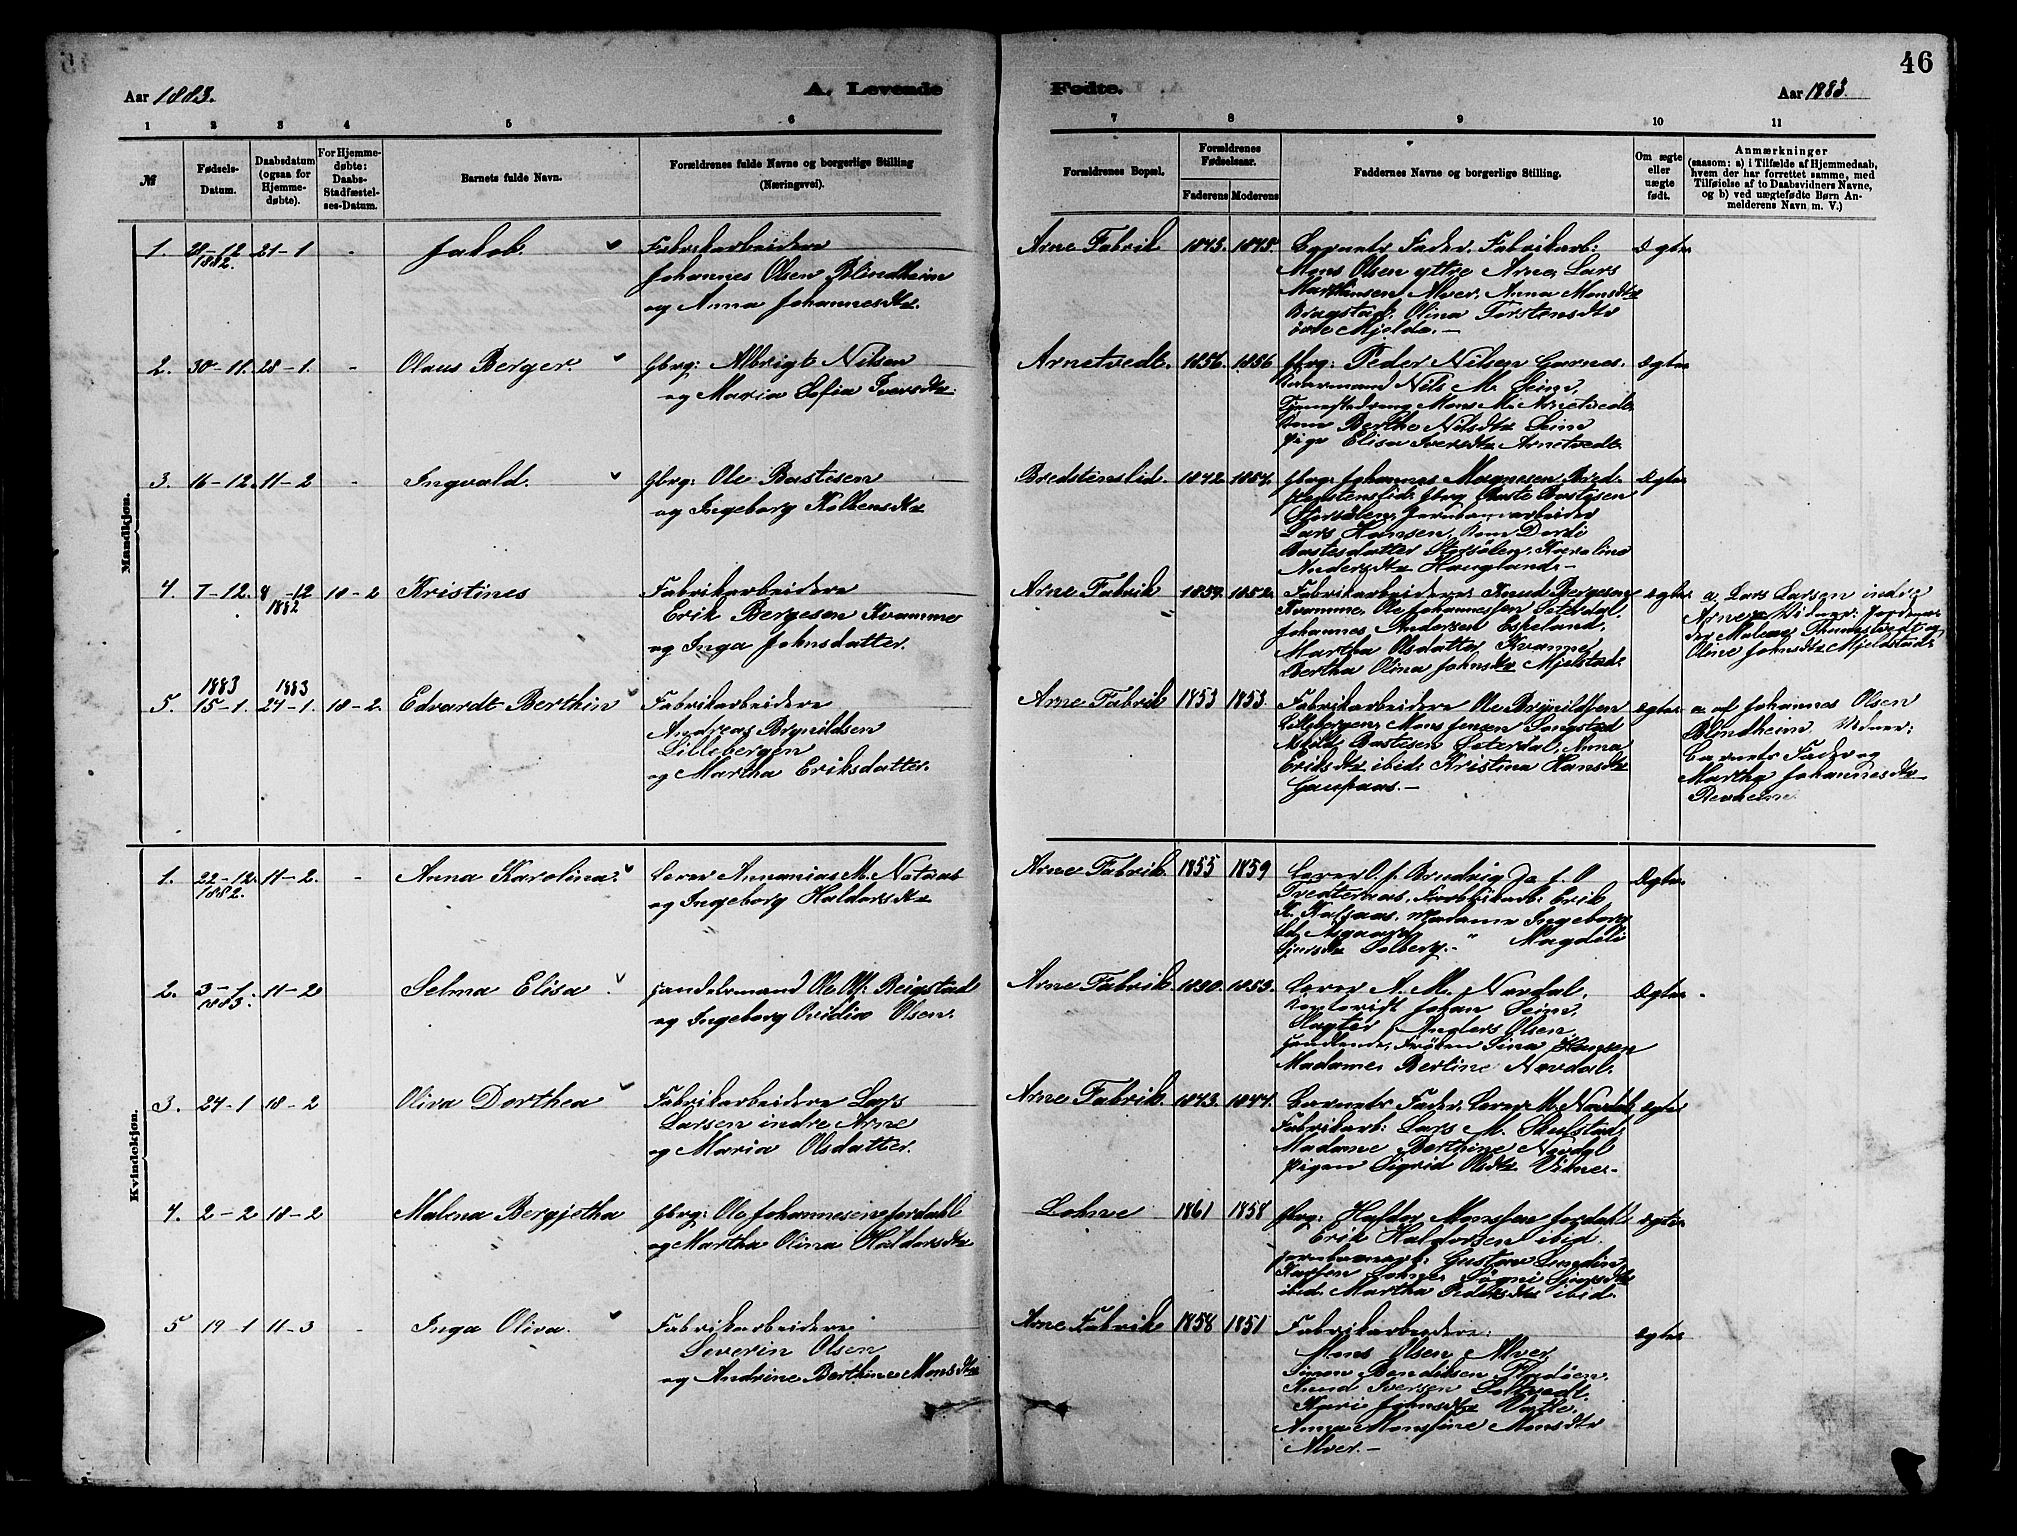 46
Aar 1883.
A. Levende
Fødte.
Aar 1883.
1 2 3 4 5 6 7 8 9 10 11
№
Fødsels-
Datum.
Daabsdatum
(ogsaa for
Hjemme-
døbte).
For Hjemme-
døbte:
Daabs-
Stadfæstel-
ses-Datum.
Barnets fulde Navn.
Forældrenes fulde Navne og borgerlige Stilling
(Næringsvei).
Forældrenes Bopæl.
Forældrenes
Fødselsaar.
Faderens Moderens
Faddernes Navne og borgerlige Stilling.
Om ægte
eller
uægte
født.
Anmærkninger
(saasom: a) i Tilfælde af Hjemmedaab,
hvem der har forrettet samme, med
Tilføielse af to Daabsvidners Navne,
og b) ved uægtefødte Børn An-
melderens Navn m. V.)
Mandkjøn.
1. 28-12 1882. 21-1 - Jakob.
Fabrikarbeider
Johannes Olsen Blindheim
og Anna Johannesdtr.
Arne Fabrik 1873. 1875.
Barnets Fader, Fabrikarb:
Mons Olsen yttre Arne, Lars
Alver, Anna Monsdtr
Olina Torstensdtr
øvre Mjelde. -
Ægte
2. 30-11. 28-1. - Olaus Berger.
Gbrg: Albrigt Nilsen
og Maria Sofia Iversdtr.
Arnetvedt. 1856. 1856
Gbrg: Peder Nilsen Garnes.
Nils M. Seim,
Tjenestedreng Mons M. Arnetvedt.
Kone Berthe Nilsdtr Seim
Pige Elisa Iversdtr Arnetvedt.
Ægte
3. 16-12. 11-2 - Ingvald.
Gbrg: Ole Bastesen
og Ingeborg Kolbensdtr
Bredstenslid. 1842 1854.
Gbrg. Johannes Magnesen Bred-
stenslid. Gbrg Baste Bastesen
Lars Hansen, Kone Dordi
Bastesdatter Karolina
Andersdtr Haugland -
Ægte
4. 7-12. 8-12 1882 18-2 Kristines
Fabrikarbeider
Erik Bergesen Kvamme
og Inga Johnsdatter.
Arne Fabrik 1852.
Fabrikarbeidere: Knud Bergesen
Kvamme, Ole Johannessen Seterdal,
Johannes Andersen Espeland,
Martha Olsdatter Kvamme
Bertha Olina Johnsdtr Mjelstad.
Ægte
a. Lars Larsen indre
Arne. Vidner: Jordemo-
der Malene Thunestvedt og
Oline Johnsdtr Mjeldstad.
5. 1883 15-1. 1883 24-1. 18-2. Edvardt Berthin
Fabrikarbeider
Andreas Brynildsen
Lillebergen
og Martha Eriksdatter.
Arne Fabrik 1853 1853.
Fabrikarbeidere Ole Brynildsen
Lillebergen, Mons Jensen Songstad
Bastesen Seterdal, Anna
Eriksdtr ibid: Kristina Hansdtr
Gaupaas. -
Ægte
a. af Johannes Olsen
Blindheim Vidner:
Barnets Fader og
Martha Johannesdtr
Kvindekjøn.
1. 22-12. 1882. 11-2. - Anna Karolina.
Lærer Annanias M. Natvaas
og Ingeborg Haldorsdtr
Arne Fabrik. 1855 1859
Lærer O. J. Brudvig
Fabrikarb: Erik
Madame Ingeborg
Solberg. - " Magdeli
Ægte
2. 3-1. 1883. 11-2 Selma Elisa.
Handelsmand Ole M. Reigstad
og Ingeborg Ovidia Olsen.
Arne Fabrik. 1853.
Lærer A. M. Navdal.
Kontorist Johan Seim,
Slagter Anders Olsen
Handlende, Frøken Sina Hansen
Madame Berline Navdal.
Ægte
3. 24-1 18-2 Oliva Dorthea
Fabrikarbeider Lars
Larsen indre Arne
og Maria Olsdatter.
Arne Fabrik. 1843. 1844.
Barnets Fader, Lærer M. Navdal
Fabrikarb: Lars M. Skulstad,
Madame Berthine Navdal
Pigen Sigrid Olsdtr Vidnes -
Ægte
4. 2-2 18-2 Malena Bergjetha
Gbrg: Ole Johannesen Jordahl
og Martha Olina Haldorsdtr
Lohne 1861 1858
Gbrg: Haldor Monssen Jordahl
Erik Haldorsen ibid.
Gustav Lundin
ibid. Martha Pedersdtr ibid.
Ægte
5 19-1 11-3 - Inga Oliva.
Fabrikarbeider
Severin Olsen
og Andrine Berthine Monsdtr
Arne Fabrik 1858 1851
Fabrikarbeidere:
Mons Olsen Alver
Simon Bendiksen Flodöen.
Knud Iversen Soltvedt.
Kari Johnsdtr Vatle.
Anna Monsine Monsdtr
Alver. -
Ægte